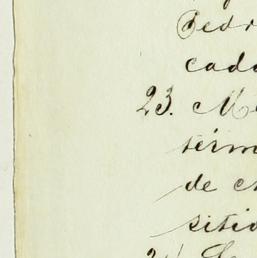 Pedr
cada
23. M
térm
de c
sitio